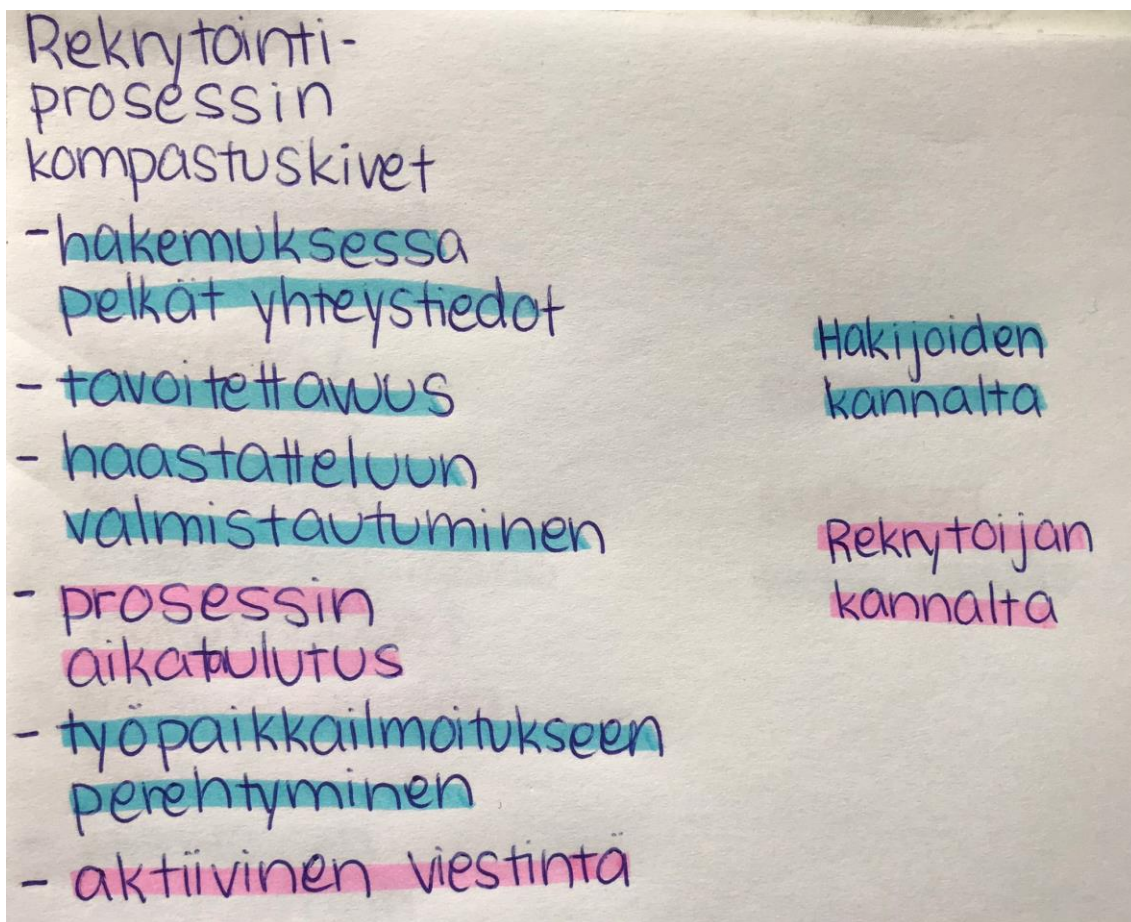 Rekrytointi-
prosessin
kompastuskivet
- hakemuksessa
pelkät yhteystiedot
- tavoitettavuus
- haastatteluun
valmistautuminen
- prosessin
aikataulutus
- työpaikkailmoitukseen
perehtyminen
- aktiivinen viestintä
Hakijoiden
kannalta
Rekrytoijan
kannalta